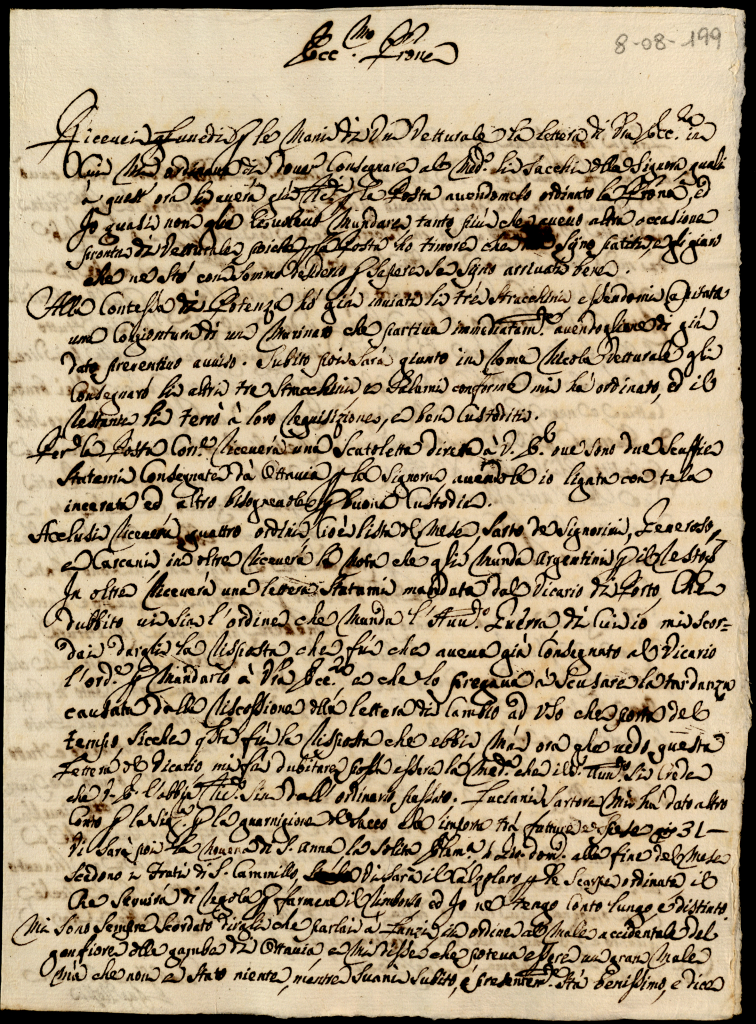 8-08-199
Ecc.mo Prone
Ricevei Lunedì p le Mani di Un Vetturale la lettera di Vra Ecc.za in
cui mi ordinava di dover Consegnare al Med.o li Sacchi della Signora quali
à quest'ora li averà già p la Posta avendomelo ordinato la Prona, ed
Io quasi non gle Mandare tanto più che avevo altra occasione
pronta di Vetturale poiche p la Posta ho timore che siino patiti, e gli giuro
che ne stò con sommo desiderio p sapere se siino arrivati bene.
Alla Contessa di Potenza hò già inviati li trè Stracchini essendomi Capitata
una Congiontura di un Marinaro che partiva immediatam.e avendogliene di già
dato preventivo avviso. Subito poi sarà giunto in Rome Nicola Vetturale gli
Consegnarò li altri tre Stracchini, e Salami conforme mi hà ordinato, ed il
restante li terrò à loro requisizione, e ben Custoditi.
Per la Posta Corr.e riceverà una Scatoletta diretta à V. E. ove sono due Scuffie
Statemi Consegnate dà Ottavia p la Signora, avendole io ligate con tela
incerata ed altro bisognevole p buona Custodia.
Acclusi riceverà quattro ordini, cioè lista del Mese, Sarto de Signorini, Generoso,
e Carcani in oltre riceverà la Nota che gli Manda Argentini p il Resto
In oltre riceverà una lettera Statami mandata dal Vicario di Porto, Che
dubbito vi sia l'ordine che Manda l'Aud.e Guerra di Cui io mi scor-
dai dargli la risposta che fù che aveva già Consegnato al Vicario
l'ord.e p Mandarlo à Vra Ecc.za e che lo pregava à Scusare la tardanza
causata dalla riscossione della lettera di Cambio ad Uso che porta del
tempo, sicche q.sta fù la risposta che ebbi Mà ora che vedo questa
lettera del Vicario mi fà dubitare possa essere la Med.a che il S. Aud.e Si Crede
che V. E. l'abbia sin dall'ordinario passato. Luciani Sartore Mi ha dato altro
Conto p la Sig.a p la guarnigione del Sacco che importa trà fattura e spese 31—
Vi sarà poi la Novena di S. Anna la solita alla fine del Mese
Scedono i frati di S. Cammillo, Vi sarà il Calzolaro p le Scarpe ordinate il
Che Seguirà di Regola p farmene il rimborso ed Io ne tengo Conto lungo e distinto.
Mi sono sempre scordato dirgli che parlai à Lanzi in ordine al Male accidentale del
gonfiore della gamba di Ottavia, e Mi disse che poteva essere un gran Male
Mà che non è stato niente, mentre Svanì Subito, e presentem.e Stà benissimo, e dice